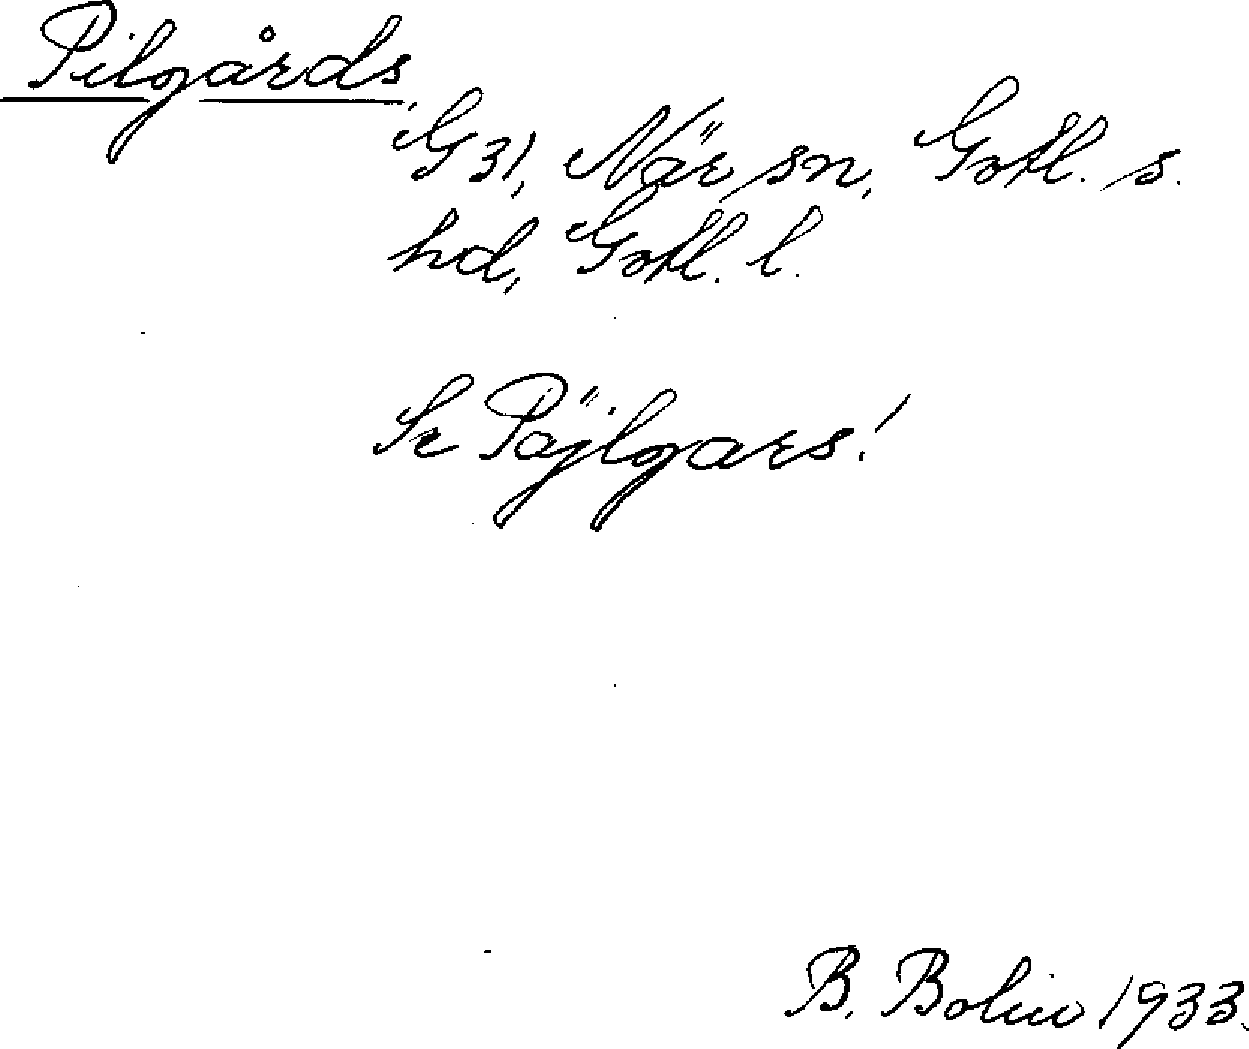 Pilgårds
G 31, När sn, Gotl. s.
hd, Gotl. l.
Se Päjlgars!
B. Bolin 1933.